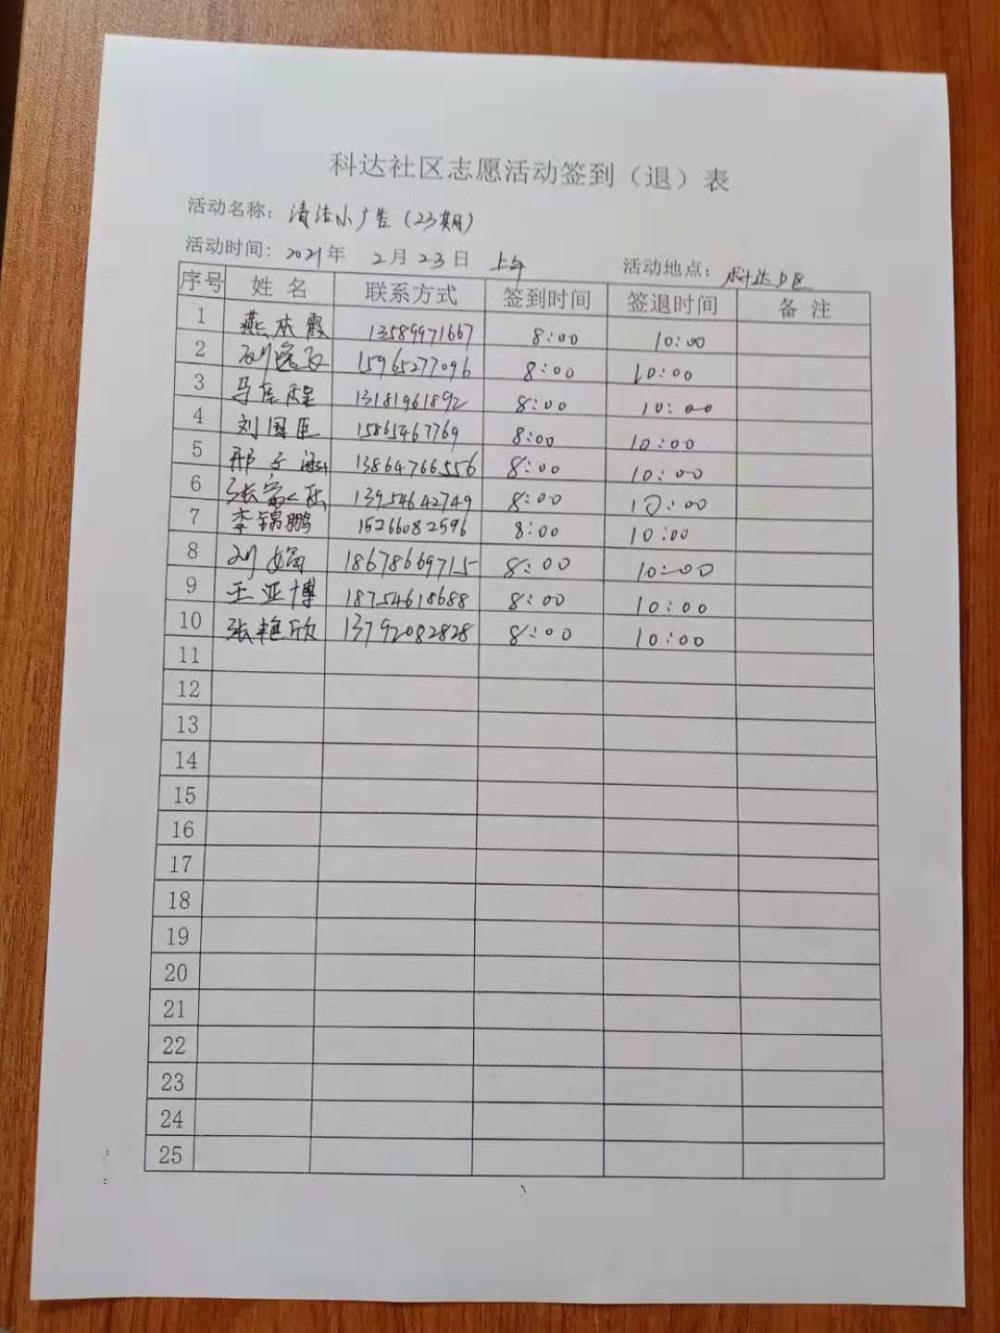 科达社区志愿活动签到（退）表
活动名称：清洁小广告（23期）
活动时间：2021年 2月23日 上午 活动地点：科达小区
序号 姓名 联系方式 签到时间 签退时间 备注
1 燕本霞 13589971667 8:00 10:00
2 刘 15965277096 8:00 10:00
3 马 13181961892 8:00 10:00
4 刘国臣 15865467769 8:00 10:00
5 邢子涵 13864766556 8:00 10:00
6 张 13954642749 8:00 10:00
7 李锦鹏 15266082596 8:00 10:00
8 刘娟 18678669715 8:00 10:00
9 王亚博 18754618688 8:00 10:00
10 张艳欣 13792082828 8:00 10:00
11
12
13
14
15
16
17
18
19
20
21
22
23
24
25